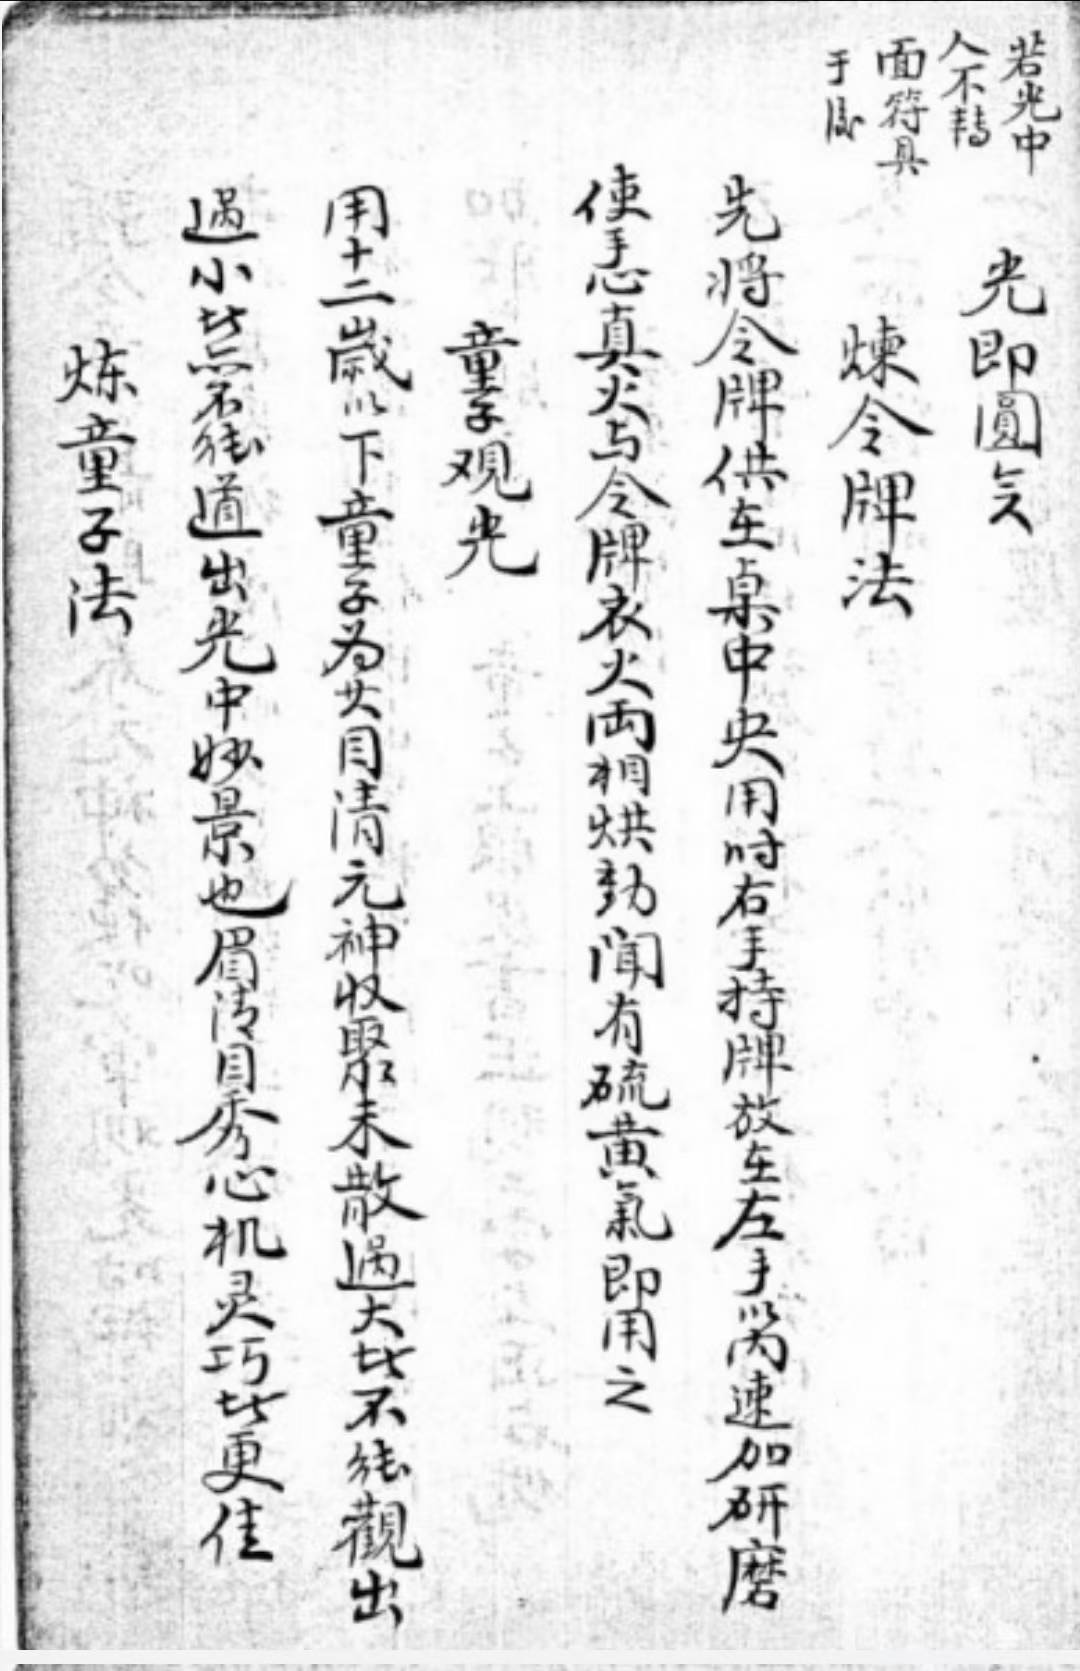 若光中
人不轉
面符具
于後
光即圓矣
煉令牌法
先將令牌供在桌中央用時右手持牌放在左手以丙速加研磨
使手心真火与令牌衣火両相烘動聞有硫黄氣即用之
童子观光
用十二歲以下童子為其目清元神收聚未散過大者不能觀出
過小者不能道出光中妙景也眉清目秀心机灵巧者更佳
炼童子法